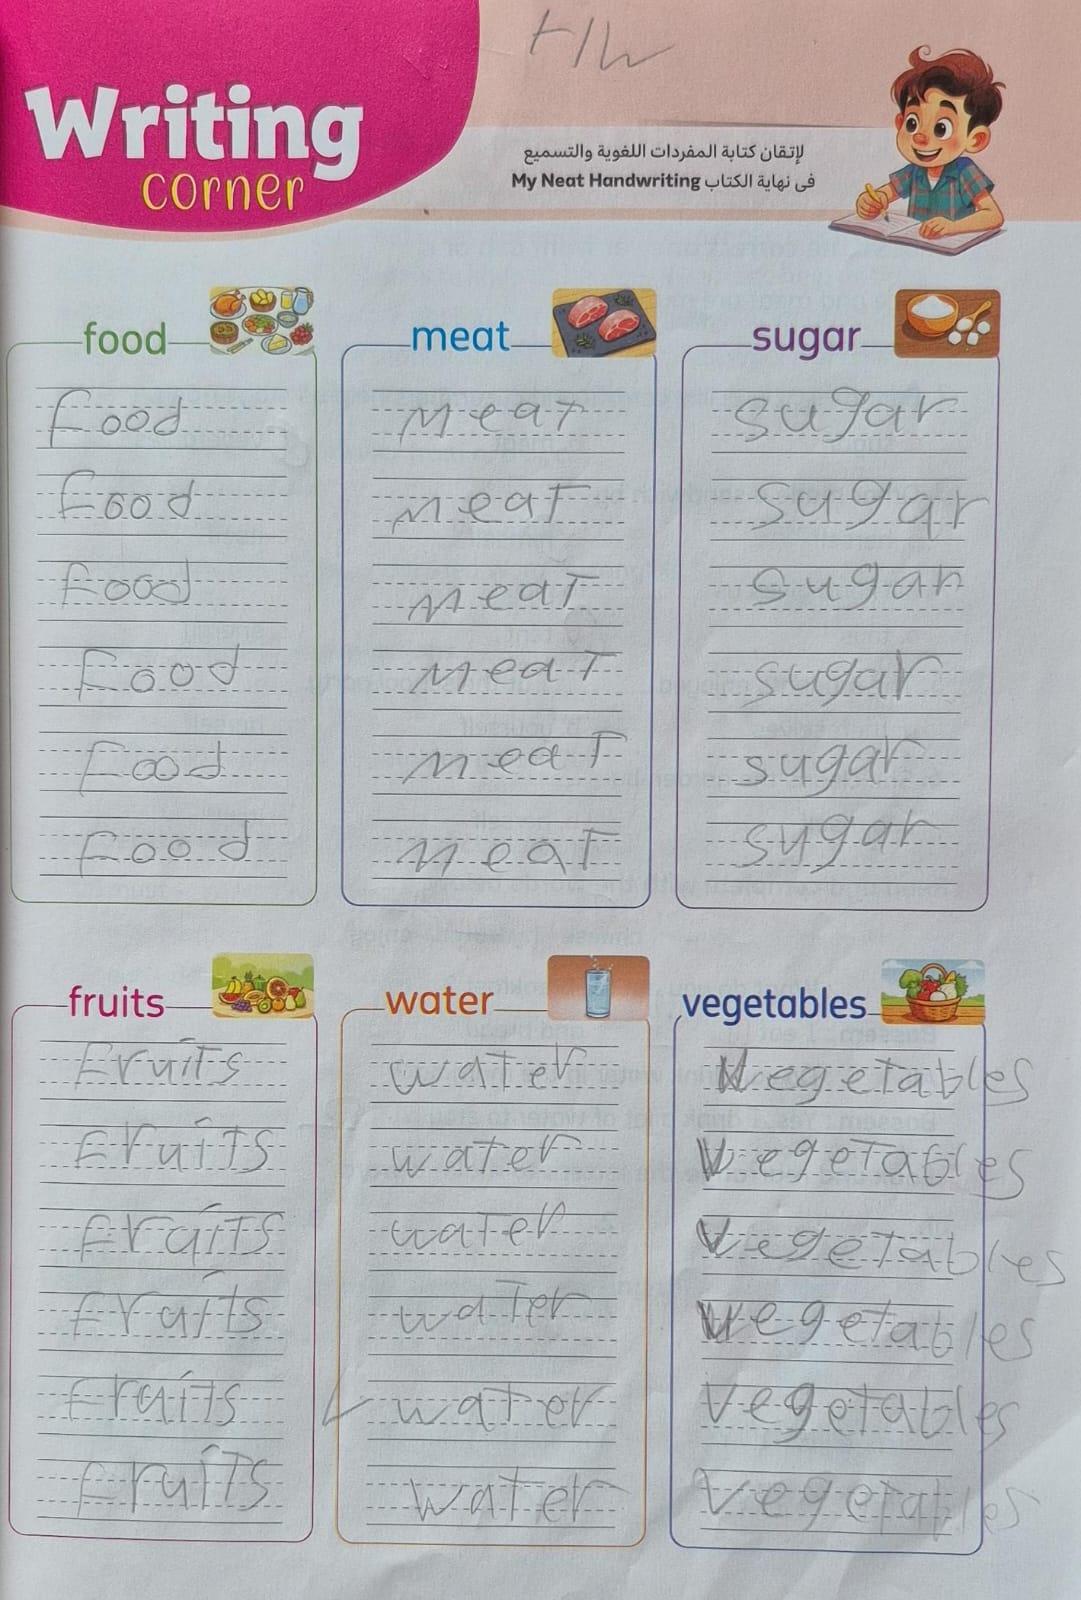 H/W
Writing
corner
لإتقان كتابة المفردات اللغوية والتسميع
فى نهاية الكتاب My Neat Handwriting
food
food
food
food
food
food
food
meat
meat
meat
meat
meat
meat
meat
sugar
sugar
sugar
sugar
sugar
sugar
sugar
fruits
fruits
fruits
fruits
fruits
fruits
fruits
water
water
water
water
water
water
water
vegetables
vegetables
vegetables
vegetables
vegetables
vegetables
vegetables